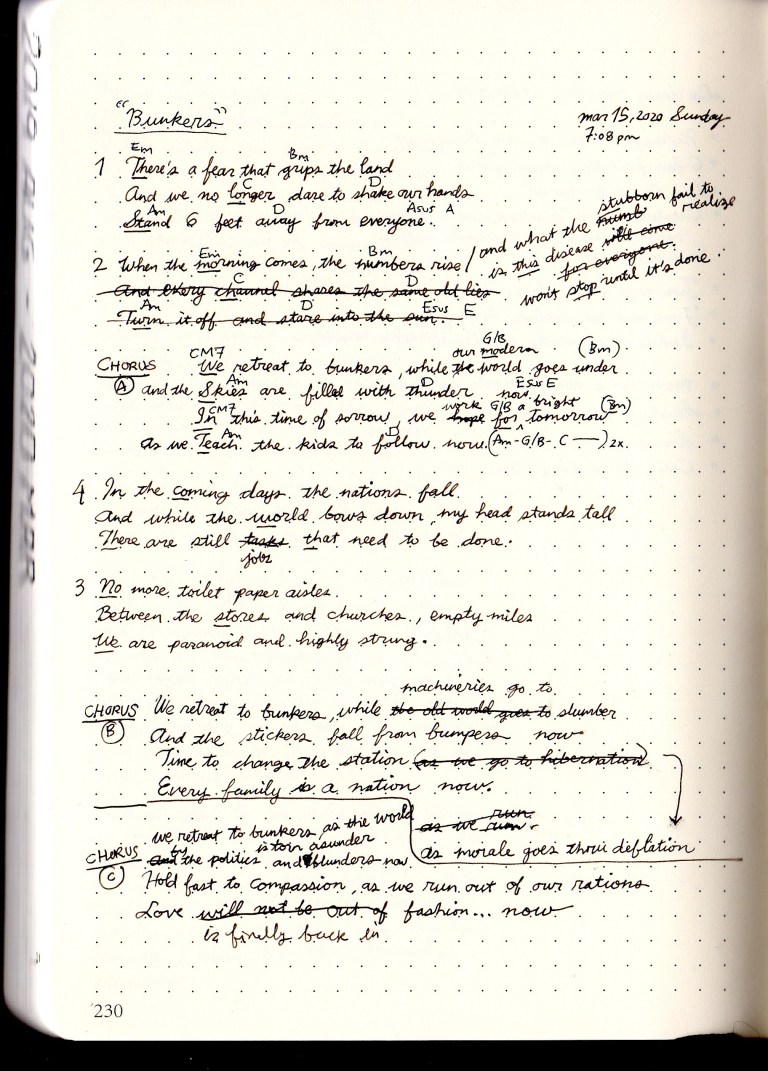 "Bunkers"
mar 15, 2020 Sunday
7:08 pm
Em Bm
1 There's a fear that grips the land
C D
And we no longer dare to shake our hands
Am D Asus A
Stand 6 feet away from everyone.
Em Bm
2 When the morning comes, the numbers rise /
and what the numb stubborn fail to realize
is this disease will come for everyone.
won't stop until it's done.
C D
And every channel shares the same old lies
Am D Esus E
Turn it off and stare into the sun.
CM7 G/B (Bm)
CHORUS We retreat to bunkers, while the our modern world goes under
Am D Esus E
(A) and the Skies are filled with thunder now.
CM7 G/B (Bm)
In this time of sorrow, we hope work for a bright tomorrow
Am D
as we Teach the kids to follow now. (Am - G/B - C —) 2x.
4 In the coming days the nations fall
And while the world bows down, my head stands tall
There are still tasks jobs that need to be done.
3 No more toilet paper aisles
Between the stores and churches, empty miles
We are paranoid and highly strung.
machineries go to
CHORUS We retreat to bunkers, while the old world goes to slumber
(B) And the stickers fall from bumpers now
Time to change the station (as we go to hibernation)
Every family is a nation now.
as we run.
run.
as morale goes thru deflation
CHORUS we retreat to bunkers, as the world is torn asunder
(C) and by the politics and blunders now
Hold fast to compassion, as we run out of our rations
Love will not be out of fashion... now
is finally back in
230
2016 AUG - 2020 MAR